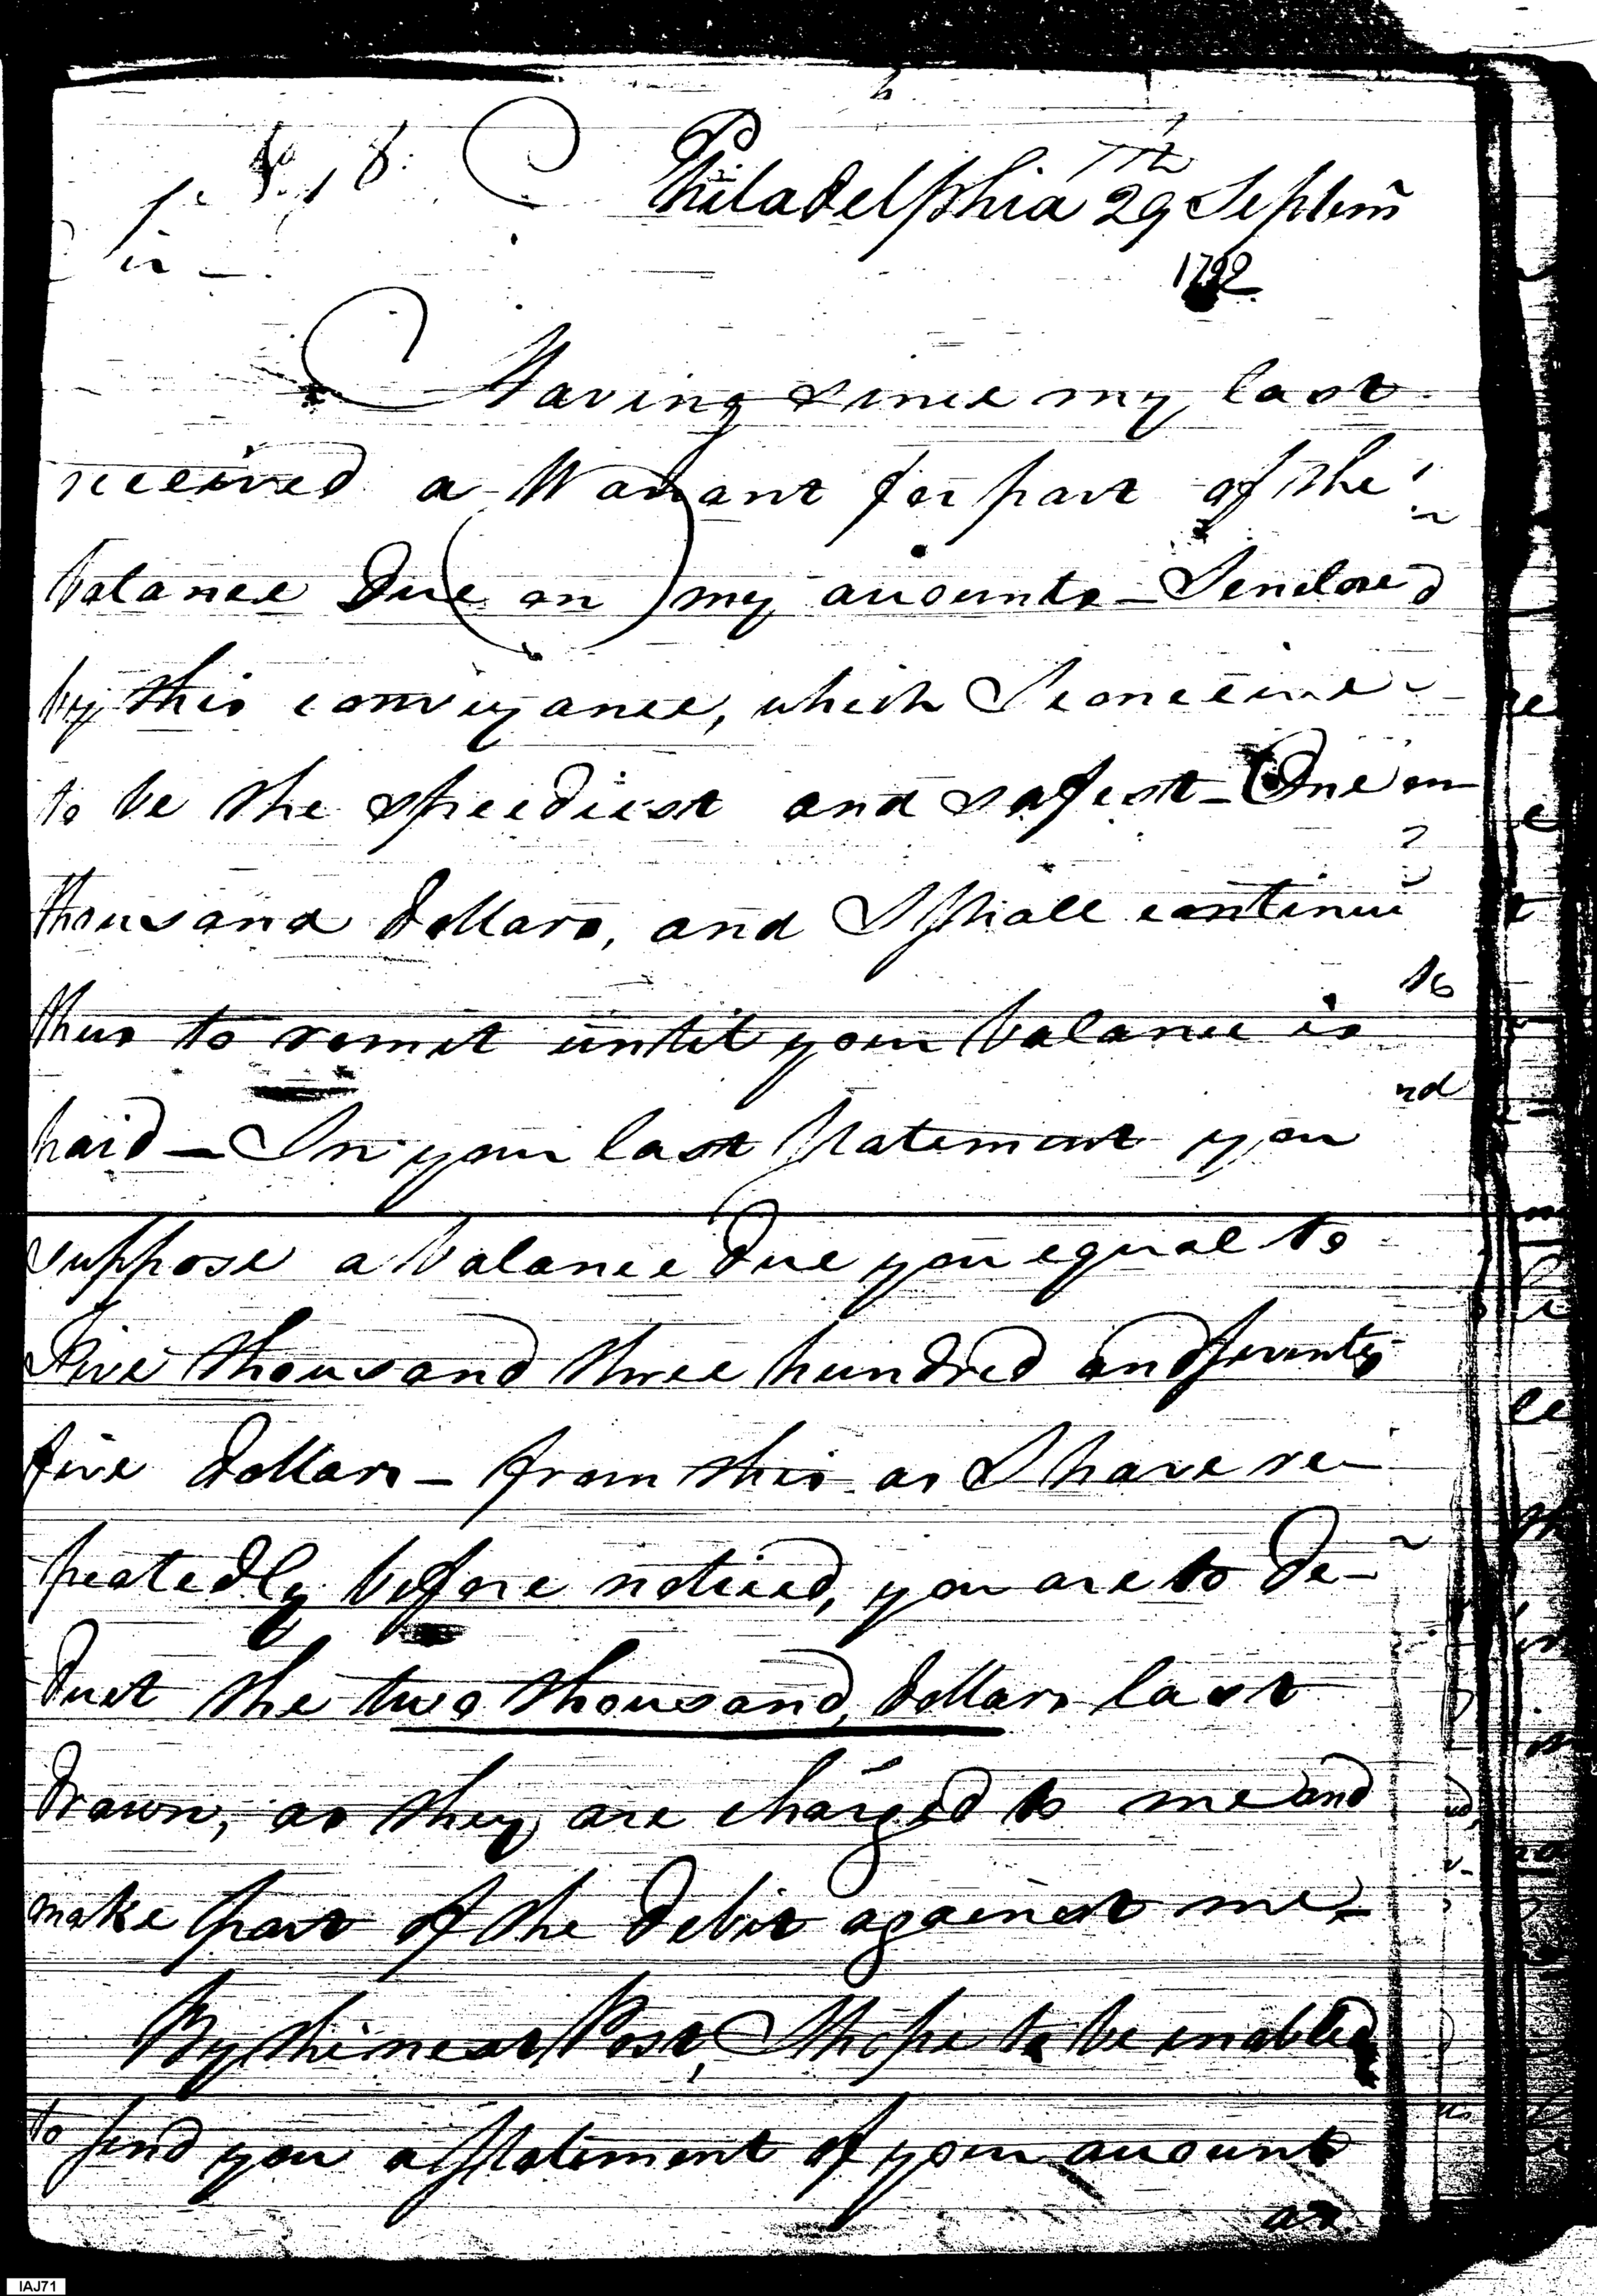 Philadelphia 29th Septem
1792.
Having since my last
received a Warrant for part of the
balance due on my accounts — I enclosed
by this conveyance, which I conceive
to be the speediest and safest — One
thousand dollars, and I shall continue
thus to remit until your balance is
paid — In your last statement you
suppose a balance due you equal to
Five thousand three hundred and seventy
five dollars — from this as I have re-
peatedly before noticed, you are to de-
duct the two thousand, dollars last
drawn, as they are charged to me and
make part of the debit against me —
By the next Post, I hope to be enabled
to send you a statement of your account
as
IAJ71